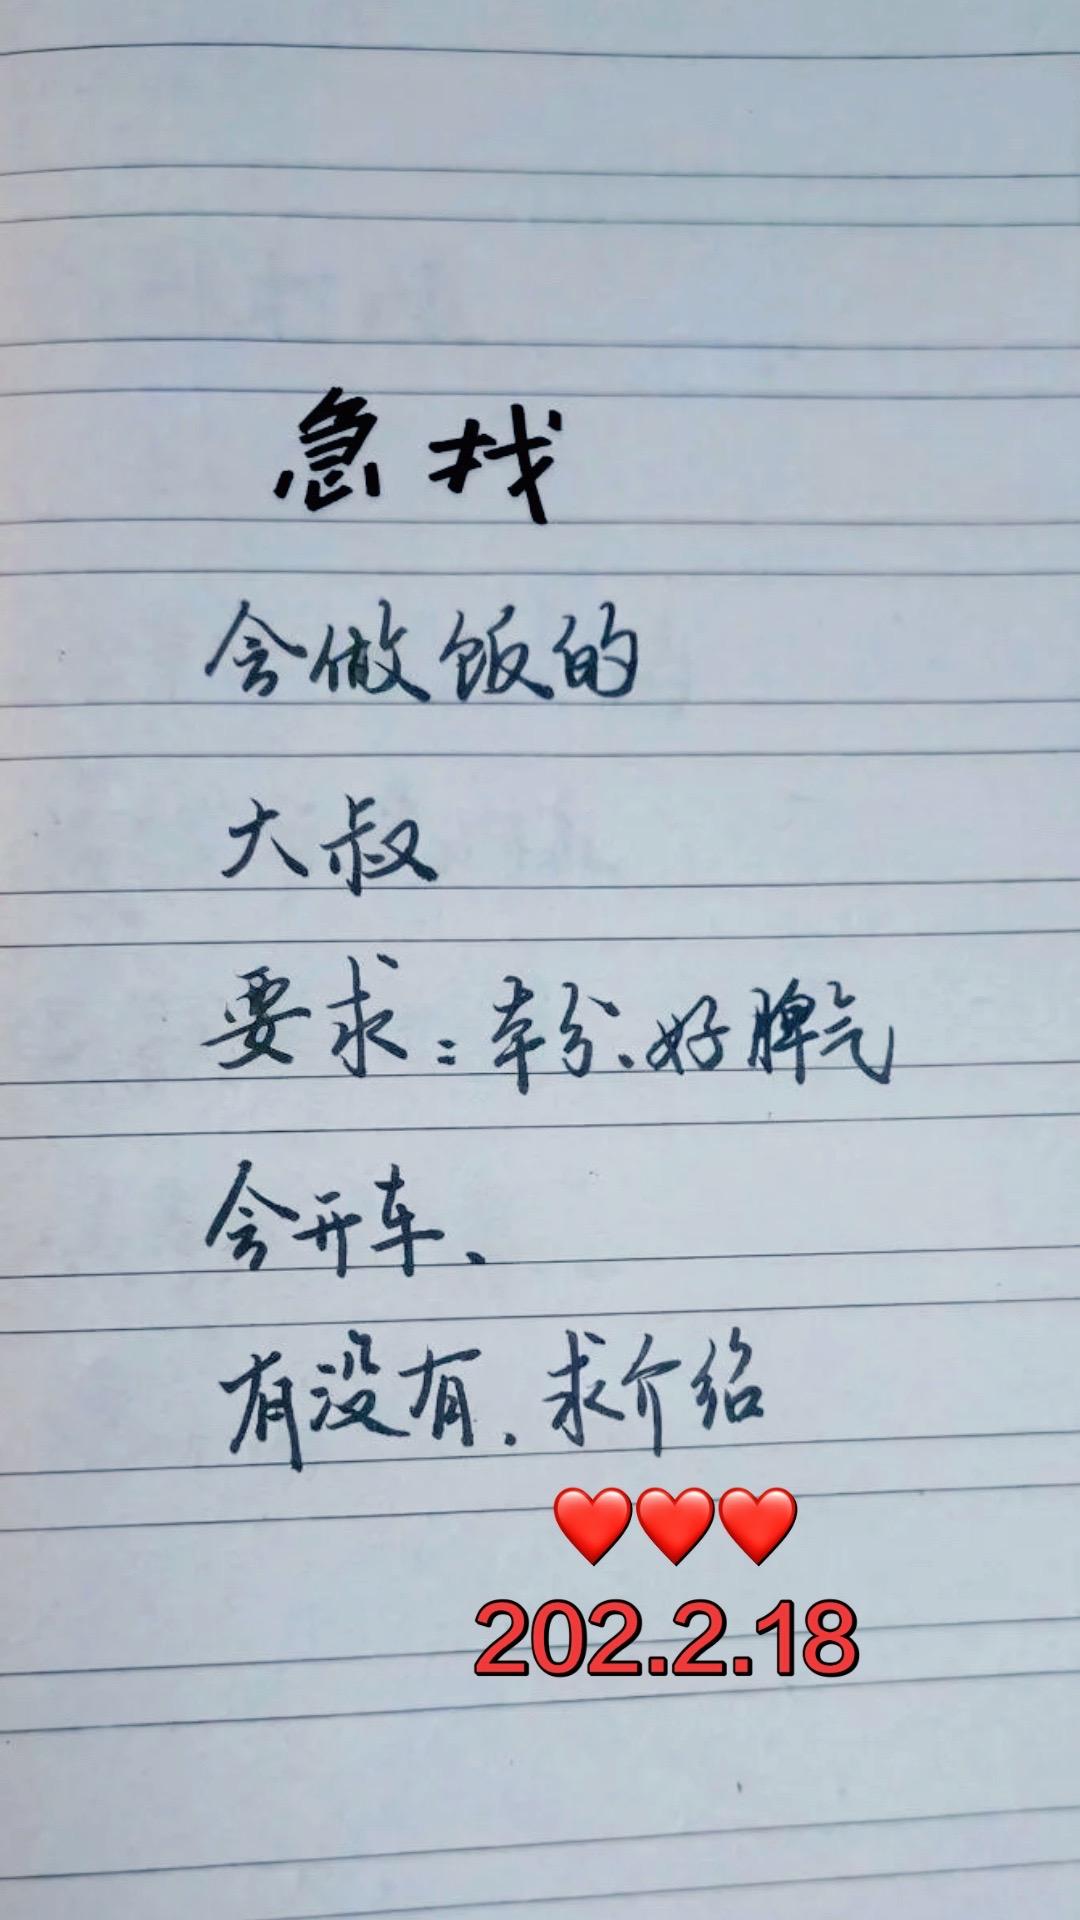 急找
会做饭的
大叔
要求：本分、好脾气
会开车、
有没有．求介绍
❤️❤️❤️
202.2.18